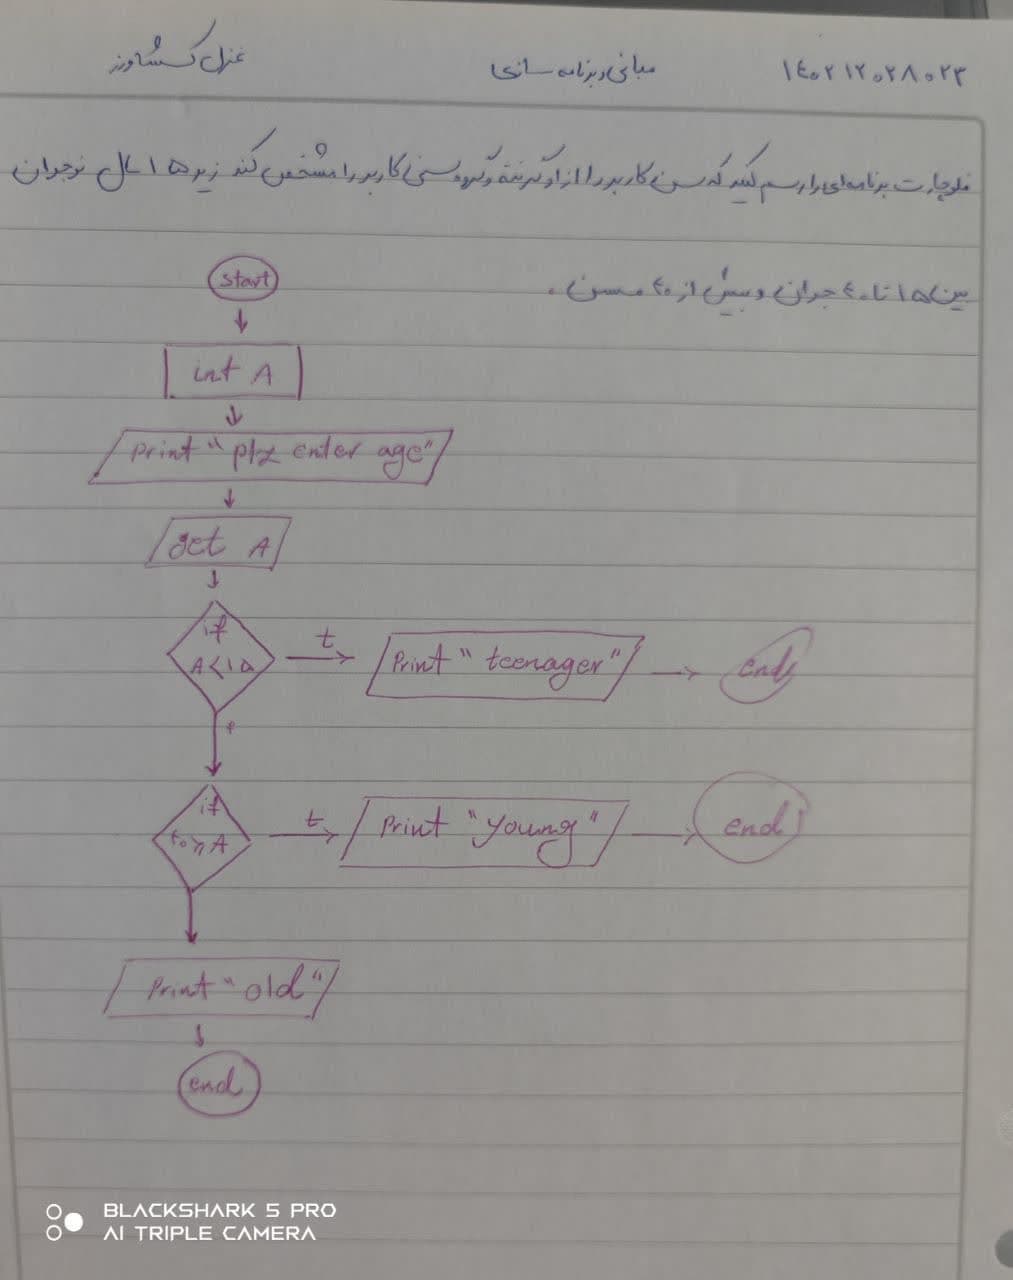 ۱۴۰۲۱۲۰۲۸۰۲۳ مبانی برنامه سازی غزل کشاورز
فلوچارت برنامه‌ای را رسم کنید که سن کاربر را از او گرفته و گروه سنی کاربر را مشخص کند زیر ۱۵ سال نوجوان
بین ۱۵ تا ۴۰ جوان و بیش از ۴۰ مسن.
start
int A
Print "plz enter age"
get A
if
A<۱۵
t
Print "teenager"
end
f
if
۴۰⩾A
t
Print "young"
end
Print "old"
end
BLACKSHARK 5 PRO
AI TRIPLE CAMERA